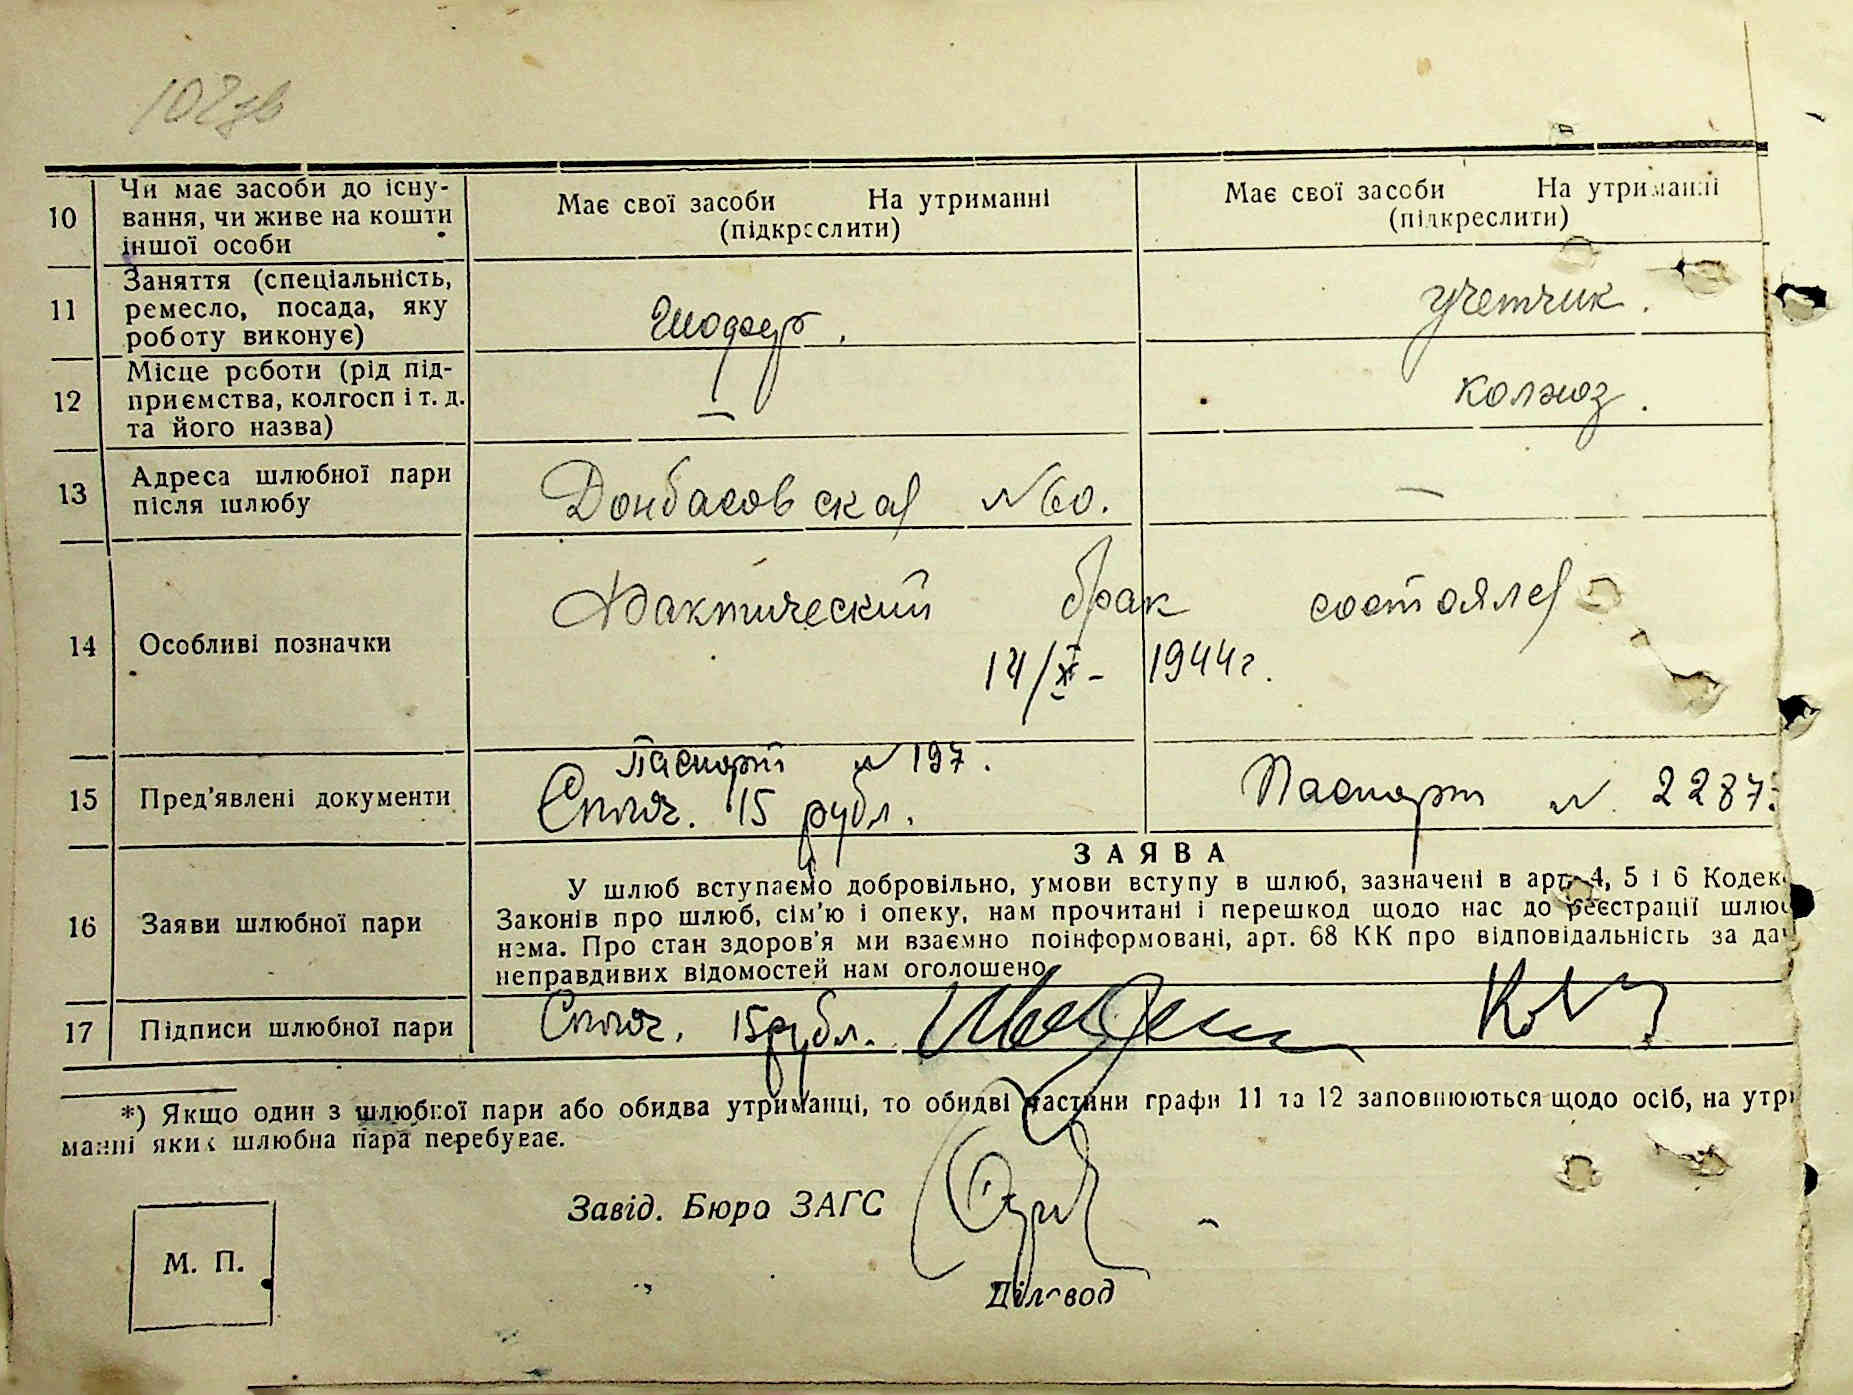 102зв
10 Чи має засоби до існу-
вання, чи живе на кошти
іншої особи
Має свої засоби На утриманні
(підкреслити)
Має свої засоби На утриманні
(підкреслити)
11 Заняття (спеціальність,
ремесло, посада, яку
роботу виконує)
Шофер.
учетчик.
12 Місце роботи (рід під-
приємства, колгосп і т. д.
та його назва)
—
колхоз.
13 Адреса шлюбної пари
після шлюбу
Донбасовская №60.
—
14 Особливі позначки
Фактический брак состоялся
14/XI- 1944г.
15 Пред'явлені документи
Паспорт № 197.
15 рубл.
Паспорт № 2287
16 Заяви шлюбної пари
ЗАЯВА
У шлюб вступаємо добровільно, умови вступу в шлюб, зазначені в арт. 4, 5 і 6 Кодек
Законів про шлюб, сім'ю і опеку, нам прочитані і перешкод щодо нас до реєстрації шлюб
нема. Про стан здоров'я ми взаємно поінформовані, арт. 68 КК про відповідальність за дач
неправдивих відомостей нам оголошено.
17 Підписи шлюбної пари
15рубл.
*) Якщо один з шлюбної пари або обидва утриманці, то обидві частини графи 11 та 12 заповнюються щодо осіб, на утри
манні яких шлюбна пара перебуває.
Завід. Бюро ЗАГС
М. П.
Діловод